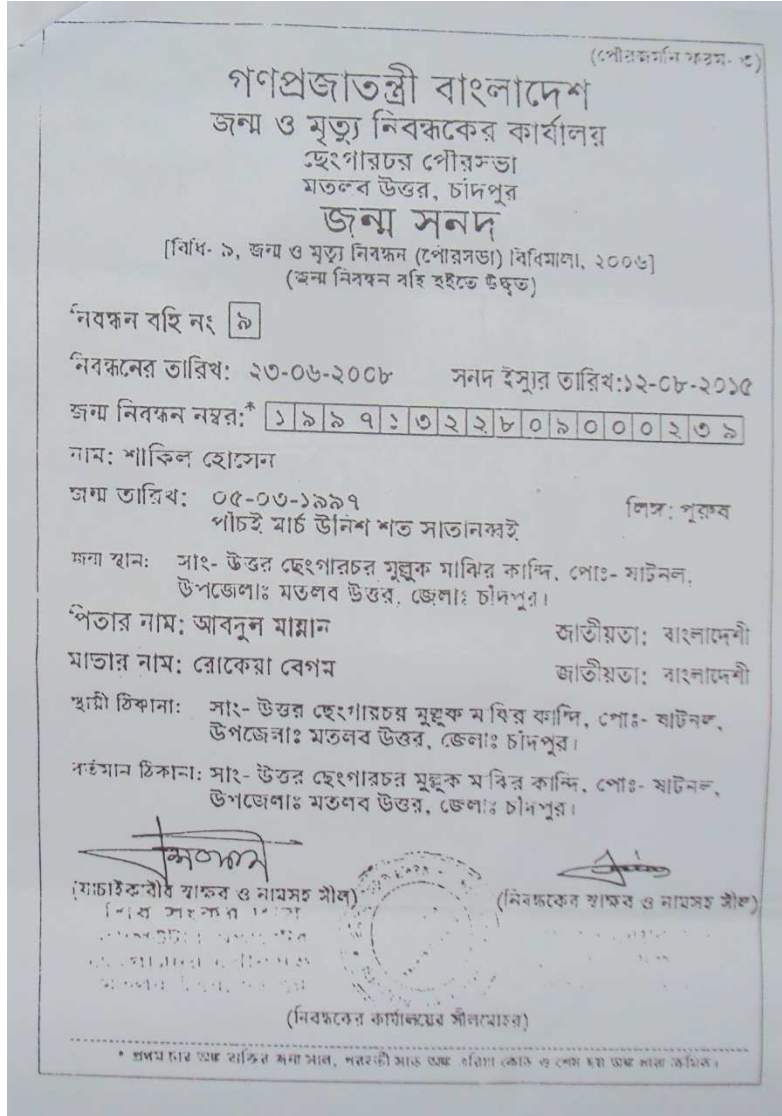 (পৌরজনি ফরম- ৩)
গণপ্রজাতন্ত্রী বাংলাদেশ
জন্ম ও মৃত্যু নিবন্ধকের কার্যালয়
ছেংগারচর পৌরসভা
মতলব উত্তর, চাঁদপুর
জন্ম সনদ
[বিধি- ৯, জন্ম ও মৃত্যু নিবন্ধন (পৌরসভা) বিধিমালা, ২০০৬]
(জন্ম নিবন্ধন বহি হইতে উদ্ধৃত)
নিবন্ধন বহি নং ৯
নিবন্ধনের তারিখ: ২৩-০৬-২০০৮ সনদ ইস্যুর তারিখ:১২-০৮-২০১৫
জন্ম নিবন্ধন নম্বর:* ১৯৯৭১৩২২৮০৯০০০২৩৯
নাম: শাকিল হোসেন
জন্ম তারিখ: ০৫-০৩-১৯৯৭ লিঙ্গ: পুরুষ
পাঁচই মার্চ উনিশ শত সাতানব্বই
জন্ম স্থান: সাং- উত্তর ছেংগারচর মুল্লুক মাঝির কান্দি, পোঃ- ষাটনল,
উপজেলাঃ মতলব উত্তর, জেলাঃ চাঁদপুর।
পিতার নাম: আবদুল মান্নান জাতীয়তা: বাংলাদেশী
মাতার নাম: রোকেয়া বেগম জাতীয়তা: বাংলাদেশী
স্থায়ী ঠিকানা: সাং- উত্তর ছেংগারচর মুল্লুক মাঝির কান্দি, পোঃ- ষাটনল,
উপজেলাঃ মতলব উত্তর, জেলাঃ চাঁদপুর।
বর্তমান ঠিকানা: সাং- উত্তর ছেংগারচর মুল্লুক মাঝির কান্দি, পোঃ- ষাটনল,
উপজেলাঃ মতলব উত্তর, জেলাঃ চাঁদপুর।
(যাচাইকারীর স্বাক্ষর ও নামসহ সীল) (নিবন্ধকের স্বাক্ষর ও নামসহ সীল)
(নিবন্ধকের কার্যালয়ের সীলমোহর)
* প্রথম চার অঙ্ক ব্যক্তির জন্ম সাল, পরবর্তী সাত অঙ্ক এরিয়া কোড ও শেষ ছয় অঙ্ক ক্রমিক।